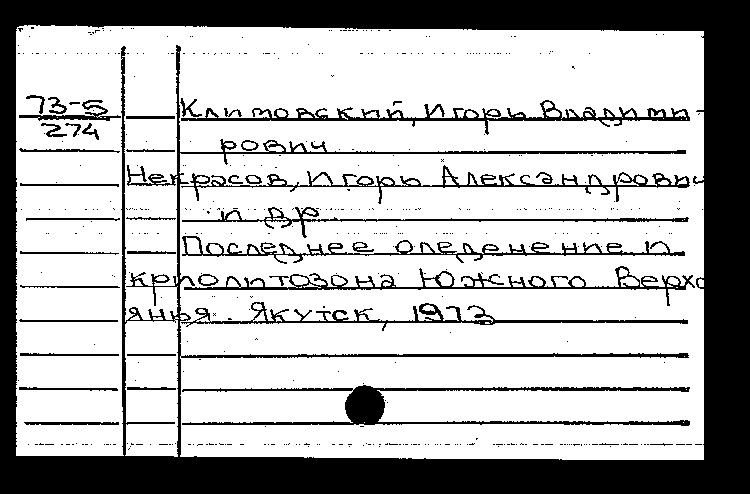 73-5
274
Климовский, Игорь Владими-
рович
Некрасов, Игорь Александрович
и др.
Последнее оледенение и
криолитозона Южного Верхо
янья. Якутск, 1973